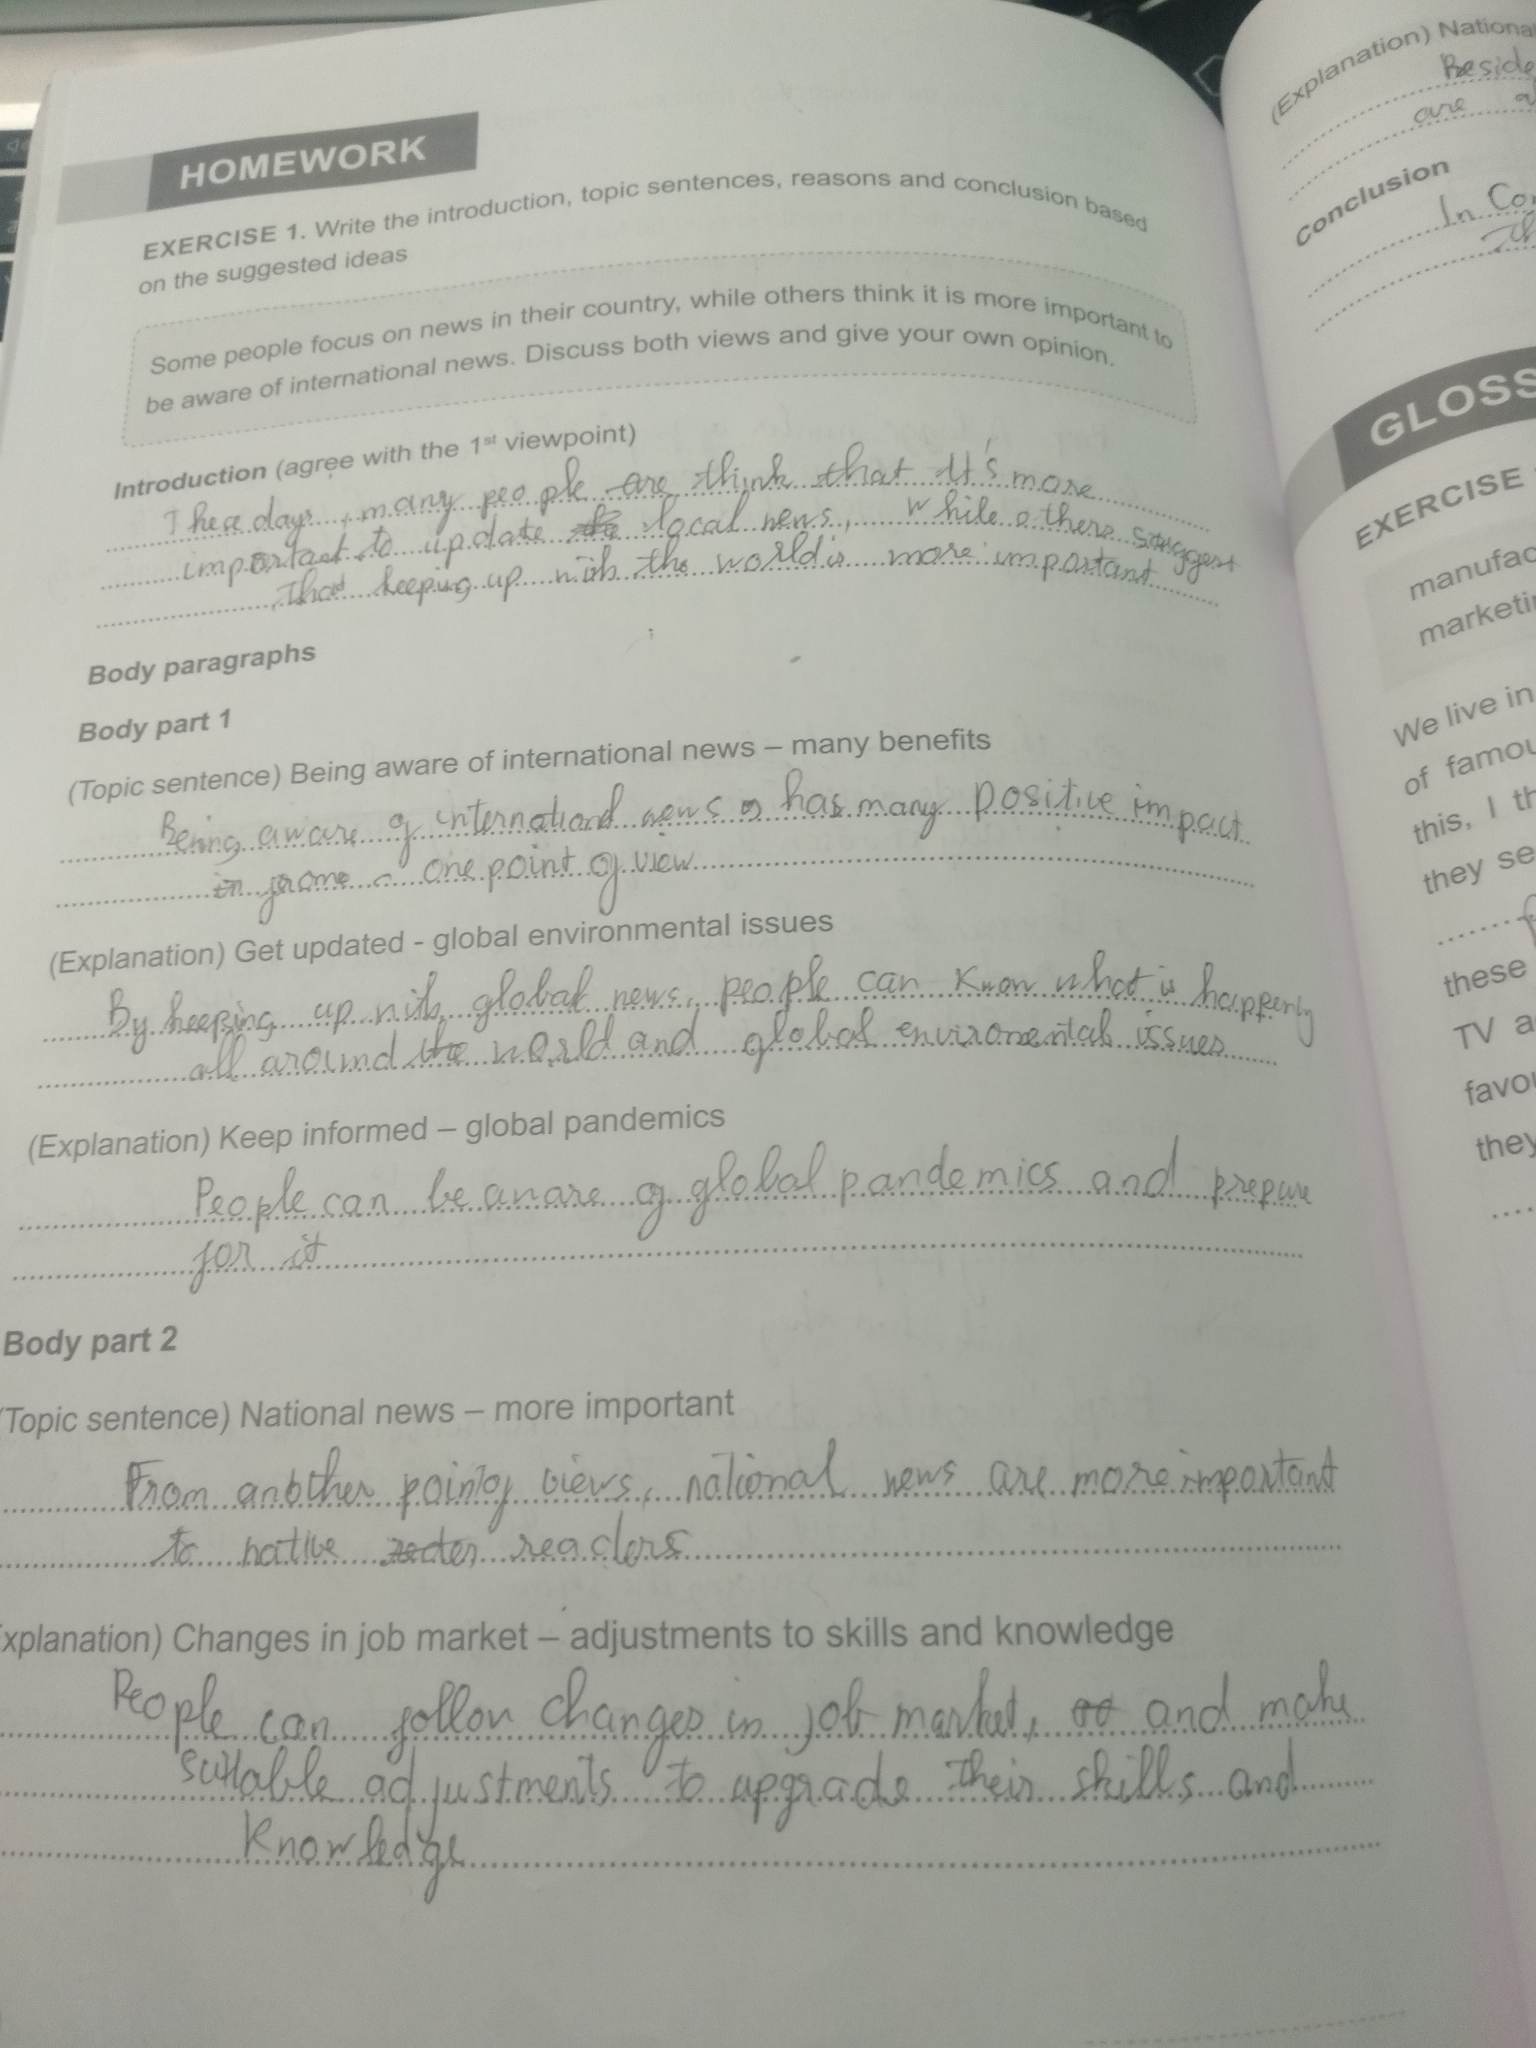 HOMEWORK
EXERCISE 1. Write the introduction, topic sentences, reasons and conclusion based
on the suggested ideas
Some people focus on news in their country, while others think it is more important to
be aware of international news. Discuss both views and give your own opinion.
Introduction (agree with the 1st viewpoint)
These days, many people are think that It's more
important to update local news, while others suggest
that keeping up with the world is more important
Body paragraphs
Body part 1
(Topic sentence) Being aware of international news – many benefits
Being aware of international news has many positive impact
in from one point of view
(Explanation) Get updated - global environmental issues
By keeping up with global news, people can know what is happening
all around the world and global enviromental issues
(Explanation) Keep informed – global pandemics
People can be aware of global pandemics and prepare
for it
Body part 2
(Topic sentence) National news – more important
From another point of views, national news are more important
to native readers
xplanation) Changes in job market – adjustments to skills and knowledge
People can follow changes in job market, and make
suitable adjustments to upgrade their skills and
knowledge
(Explanation) Nationa
Beside
are
Conclusion
In Con
GLOSS
EXERCISE
manufac
marketin
We live in
of famou
this, I th
they se
these
TV a
favou
they